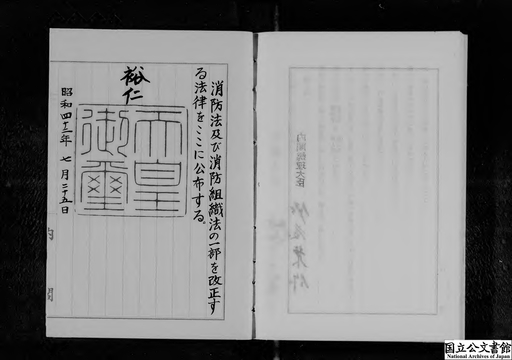 消防法及び消防組織法の一部を改正す
る法律をここに公布する。
裕仁
天皇
御璽
昭和四十三年 七月二十五日
内閣
内閣総理大臣
国立公文書館
National Archives of Japan